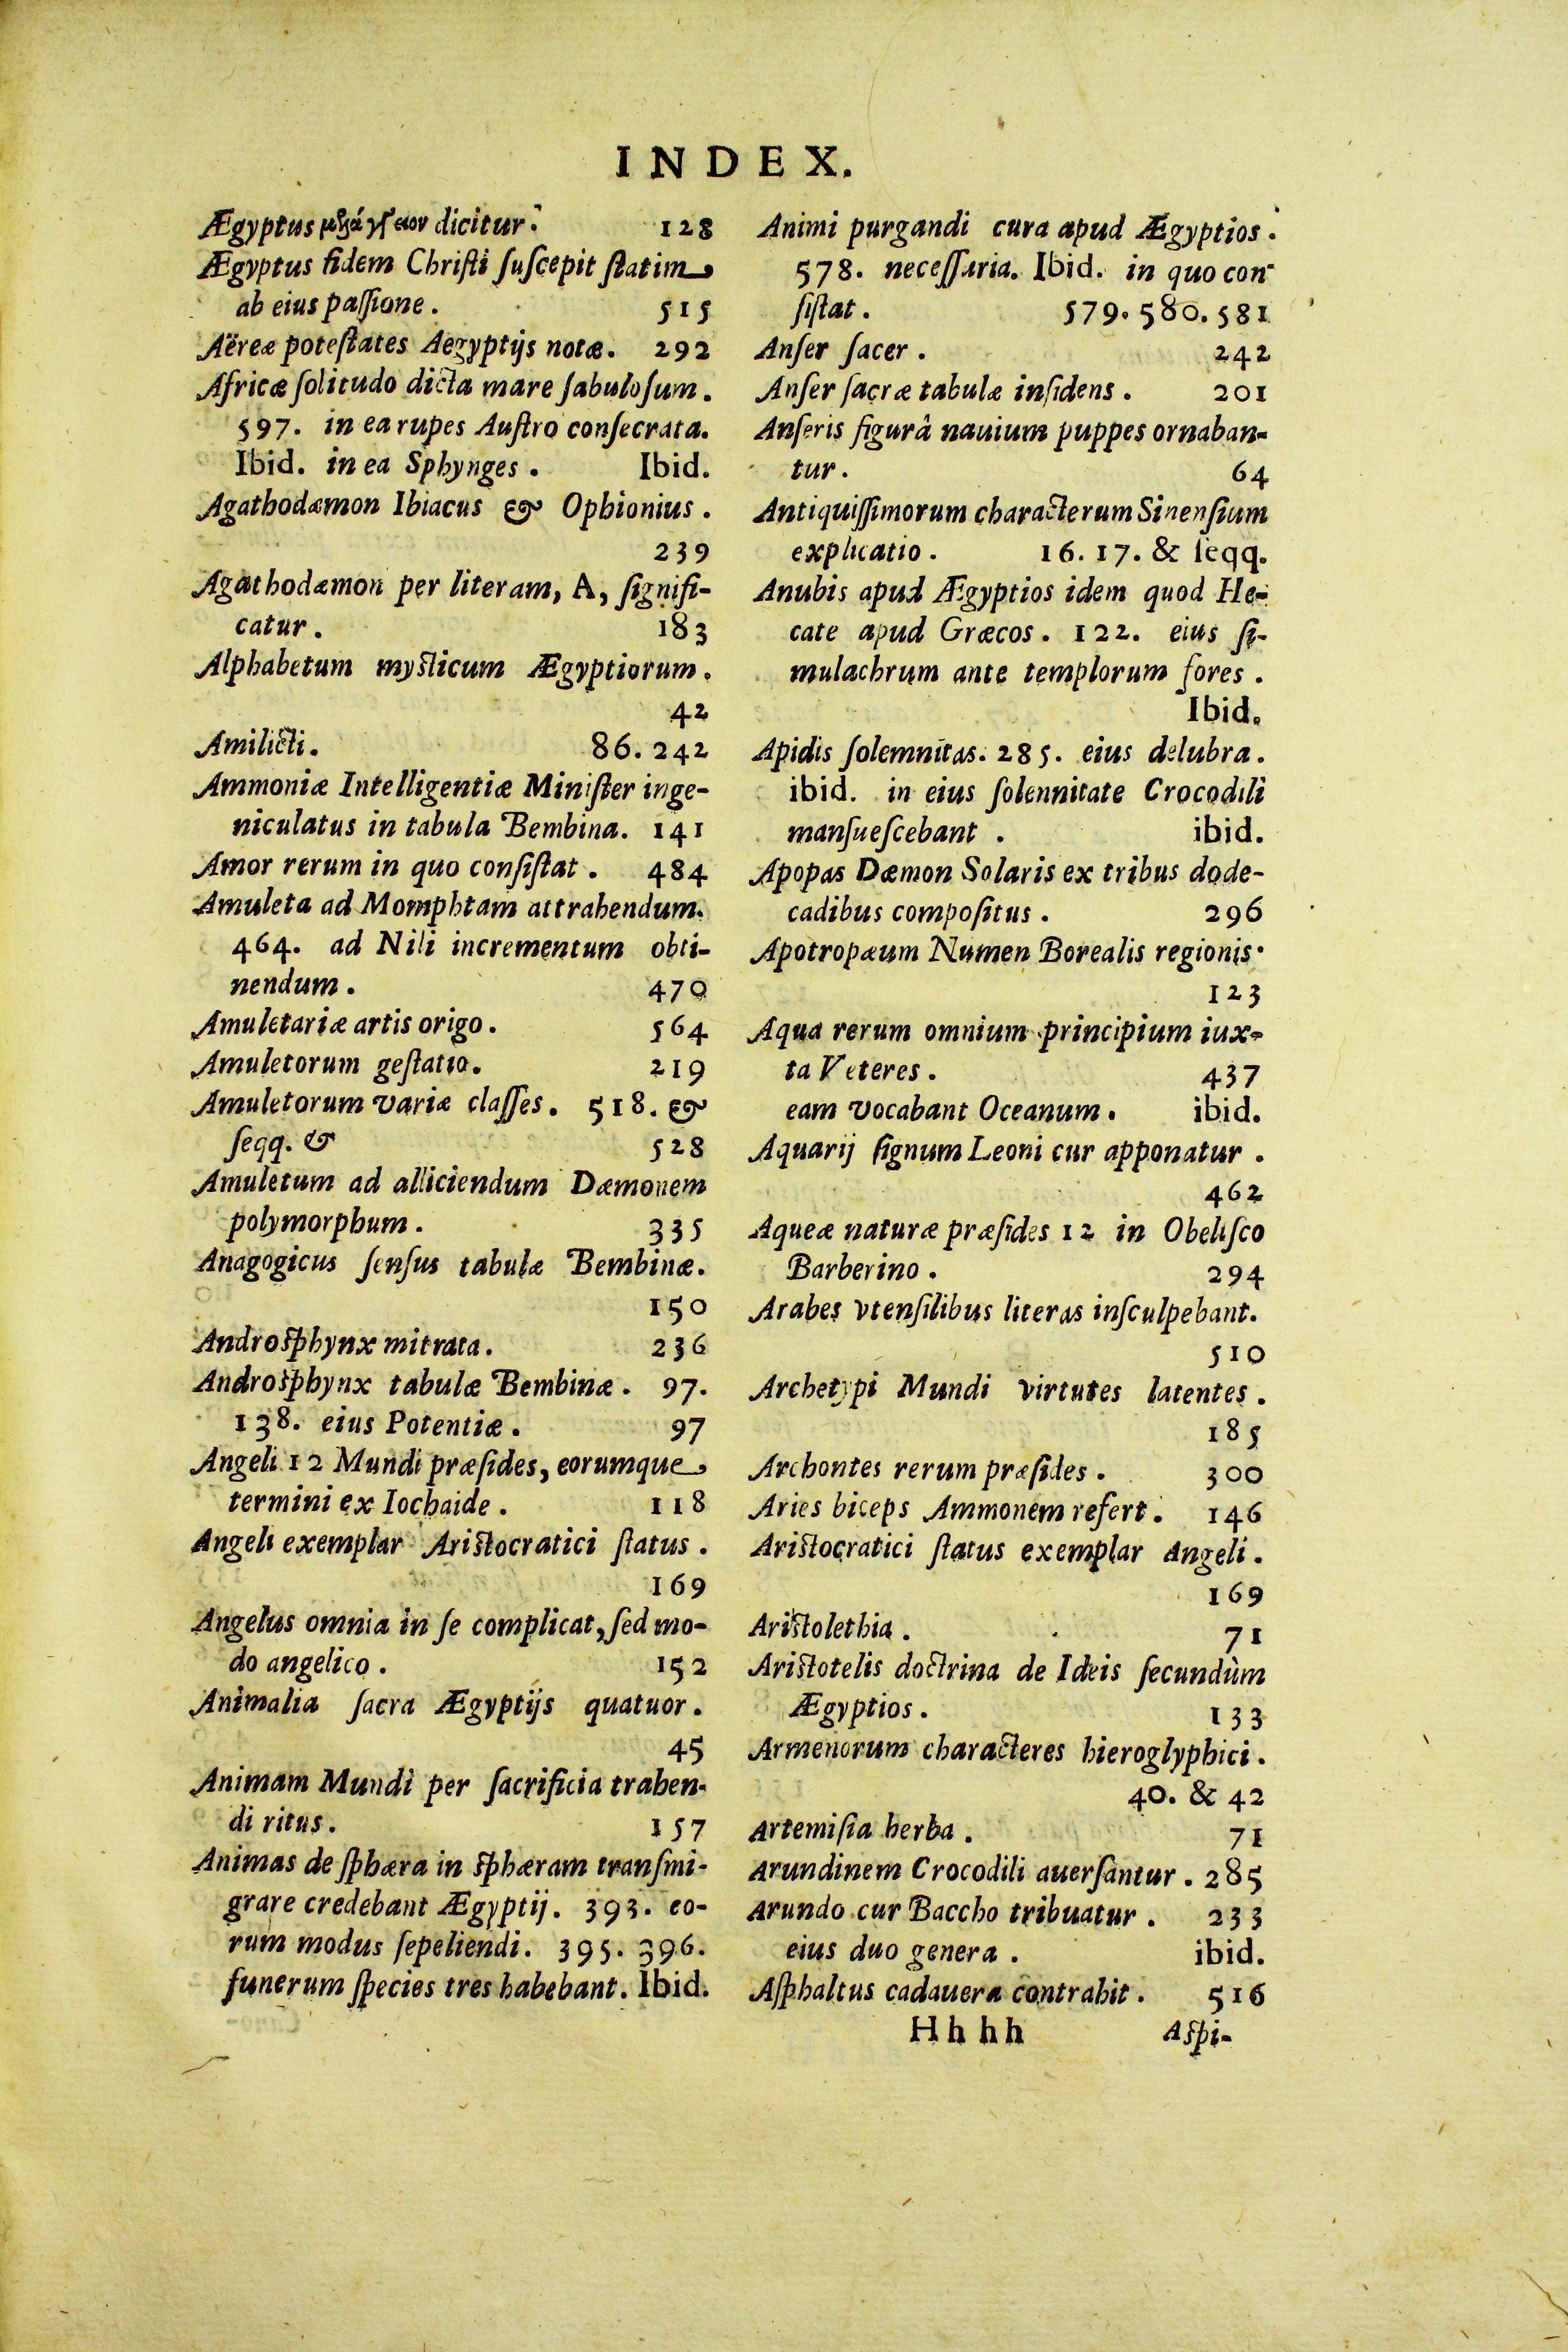 INDEX.
Ægyptus dicitur. 128
Ægyptus fidem Chriſti ſuſcepit ſtatim
ab eius paſſione. 515
Aëreæ poteſtates Aegyptijs notæ. 292
Africæ ſolitudo dicta mare ſabuloſum.
597. in ea rupes Auſtro conſecrata.
Ibid. in ea Sphynges. Ibid.
Agathodæmon Ibiacus & Ophionius.
239
Agathodæmon per literam, A, ſignifi-
catur. 183
Alphabetum myſticum Ægyptiorum.
42
Amilicti. 86. 242
Ammoniæ Intelligentiæ Miniſter inge-
niculatus in tabula Bembina. 141
Amor rerum in quo conſiſtat. 484
Amuleta ad Momphtam attrahendum.
464. ad Nili incrementum obti-
nendum. 470
Amuletariæ artis origo. 564
Amuletorum geſtatio. 219
Amuletorum variæ claſſes. 518. &
ſeqq. & 528
Amuletum ad alliciendum Dæmonem
polymorphum. 335
Anagogicus ſenſus tabulæ Bembinæ.
150
Androſphynx mitrata. 236
Androſphynx tabulæ Bembinæ. 97.
138. eius Potentiæ. 97
Angeli 12 Mundi præſides, eorumque
termini ex Iochaide. 118
Angeli exemplar Ariſtocratici ſtatus.
169
Angelus omnia in ſe complicat, ſed mo-
do angelico. 152
Animalia ſacra Ægyptijs quatuor.
45
Animam Mundi per ſacrificia trahen-
di ritus. 157
Animas de ſphæra in ſphæram tranſmi-
grare credebant Ægyptij. 393. eo-
rum modus ſepeliendi. 395. 396.
funerum ſpecies tres habebant. Ibid.
Animi purgandi cura apud Ægyptios.
578. neceſſaria. Ibid. in quo con-
ſiſtat. 579. 580. 581
Anſer ſacer. 242
Anſer ſacræ tabulæ inſidens. 201
Anſeris figurâ nauium puppes ornaban-
tur. 64
Antiquiſſimorum characterum Sinenſium
explicatio. 16. 17. & ſeqq.
Anubis apud Ægyptios idem quod He-
cate apud Græcos. 122. eius ſi-
mulachrum ante templorum fores.
Ibid.
Apidis ſolemnitas. 285. eius delubra.
ibid. in eius ſolennitate Crocodili
manſueſcebant. ibid.
Apopas Dæmon Solaris ex tribus dode-
cadibus compoſitus. 296
Apotropæum Numen Borealis regionis.
123
Aqua rerum omnium principium iux-
ta Veteres. 437
eam vocabant Oceanum. ibid.
Aquarij ſignum Leoni cur apponatur.
462
Aqueæ naturæ præſides 12 in Obeliſco
Barberino. 294
Arabes vtenſilibus literas inſculpebant.
510
Archetypi Mundi virtutes latentes.
185
Archontes rerum præſides. 300
Aries biceps Ammonem refert. 146
Ariſtocratici ſtatus exemplar Angeli.
169
Ariſtolethia. 71
Ariſtotelis doctrina de Ideis ſecundùm
Ægyptios. 133
Armenorum characteres hieroglyphici.
40. & 42
Artemiſia herba. 71
Arundinem Crocodili auerſantur. 285
Arundo cur Baccho tribuatur. 233
eius duo genera. ibid.
Aſphaltus cadauera contrahit. 516
Hhhh Aſpi-